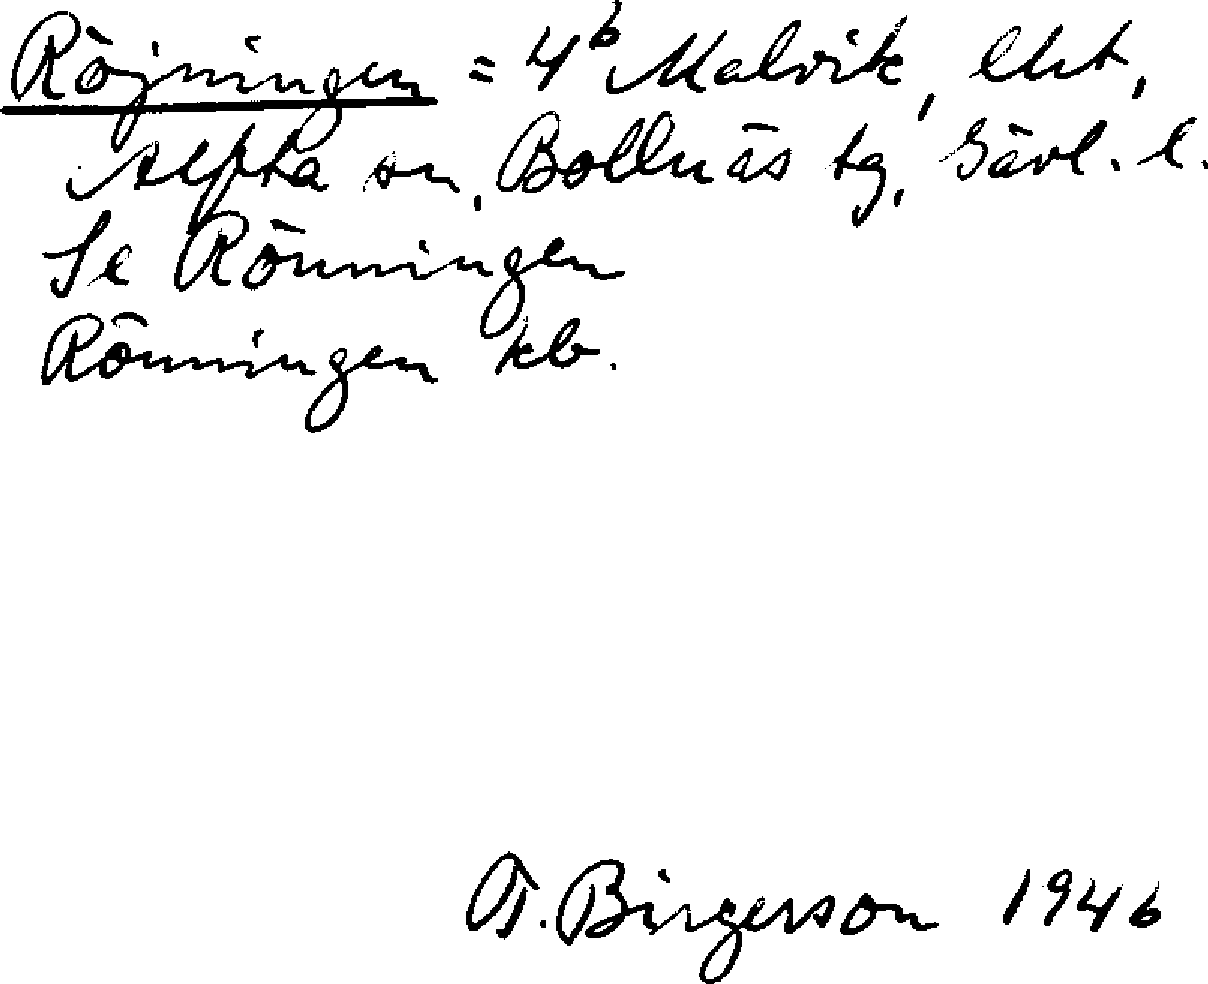 Röjningen = 4b Malvik, lht,
Alfta sn, Bollnäs tg, Gävl. l.
Se Rönningen
Rönningen kb.
T. Birgerson 1946